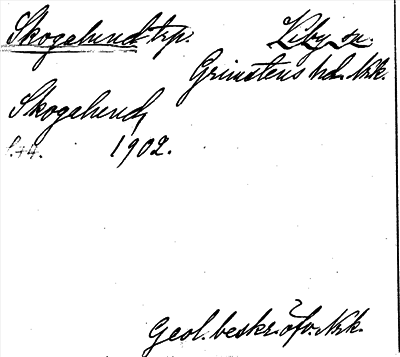 Skogalund trp. Viby sn.
Grimstens hd. Nrk.
Skogalund
s. 44. 1902.
Geol. beskr. öfv. Nrk.